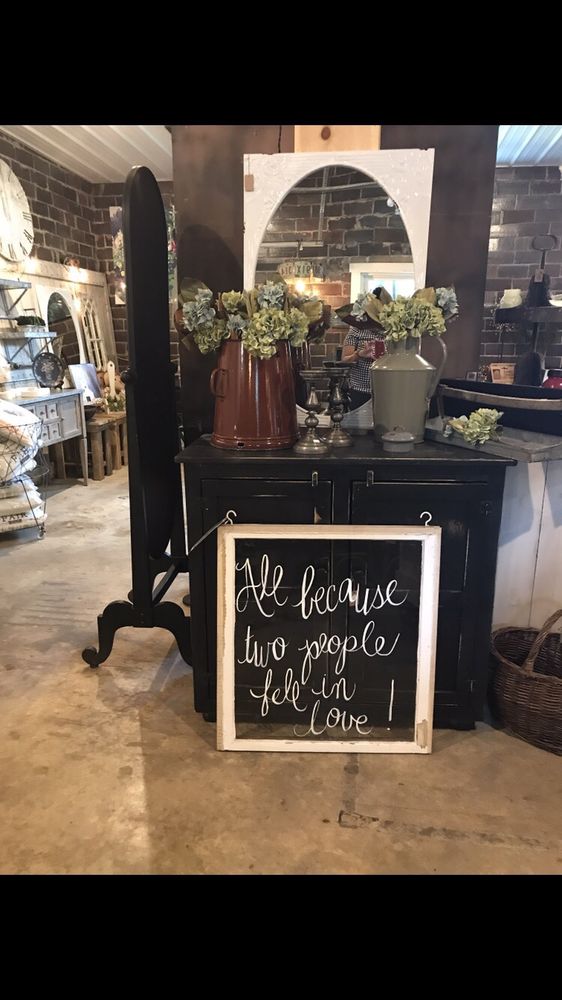 All because
two people
fell in
love!